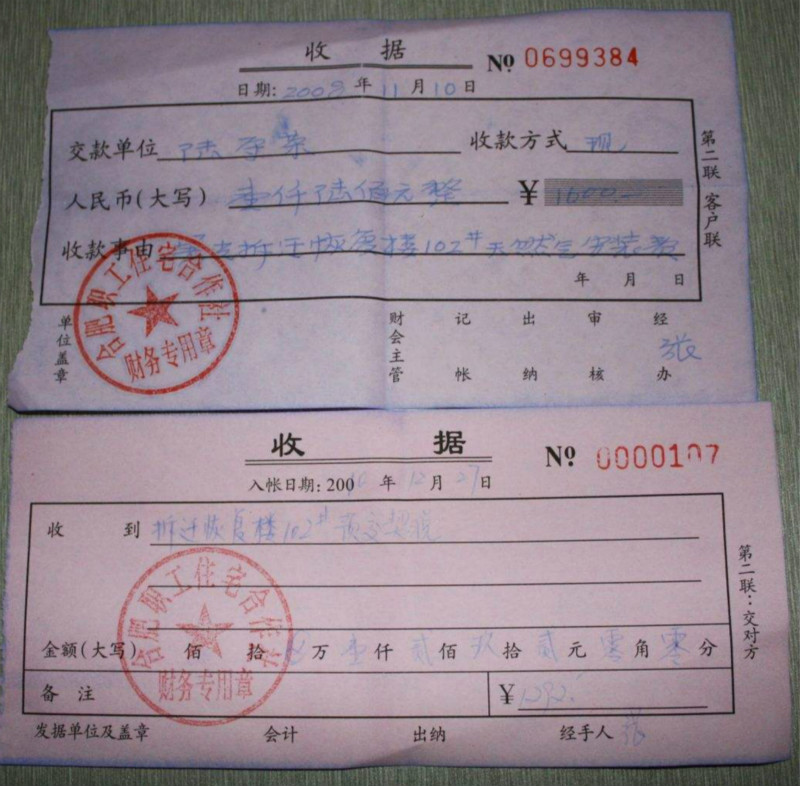 收 据
№ 0699384
日期: 2008 年 11 月 10 日
交款单位 陆 荣 收款方式 现
人民币(大写) 壹仟陆佰元整 ¥ 1600—
收款事由 拆迁恢复楼102# 天然气安装款
年 月 日
第二联 客户联
合肥职工住宅合作社
财务专用章
单位盖章 财会主管 记帐 出纳 审核 经办 张
收 据
№ 0000107
入帐日期: 200 年 12 月 27 日
收 到 拆迁恢复楼102# 预交契税
合肥职工住宅合作社
财务专用章
金额(大写) 佰 拾 万 壹 仟 贰 佰 玖 拾 贰 元 零 角 零 分
备 注 ¥ 1292.
第二联:交对方
发据单位及盖章 会计 出纳 经手人 张